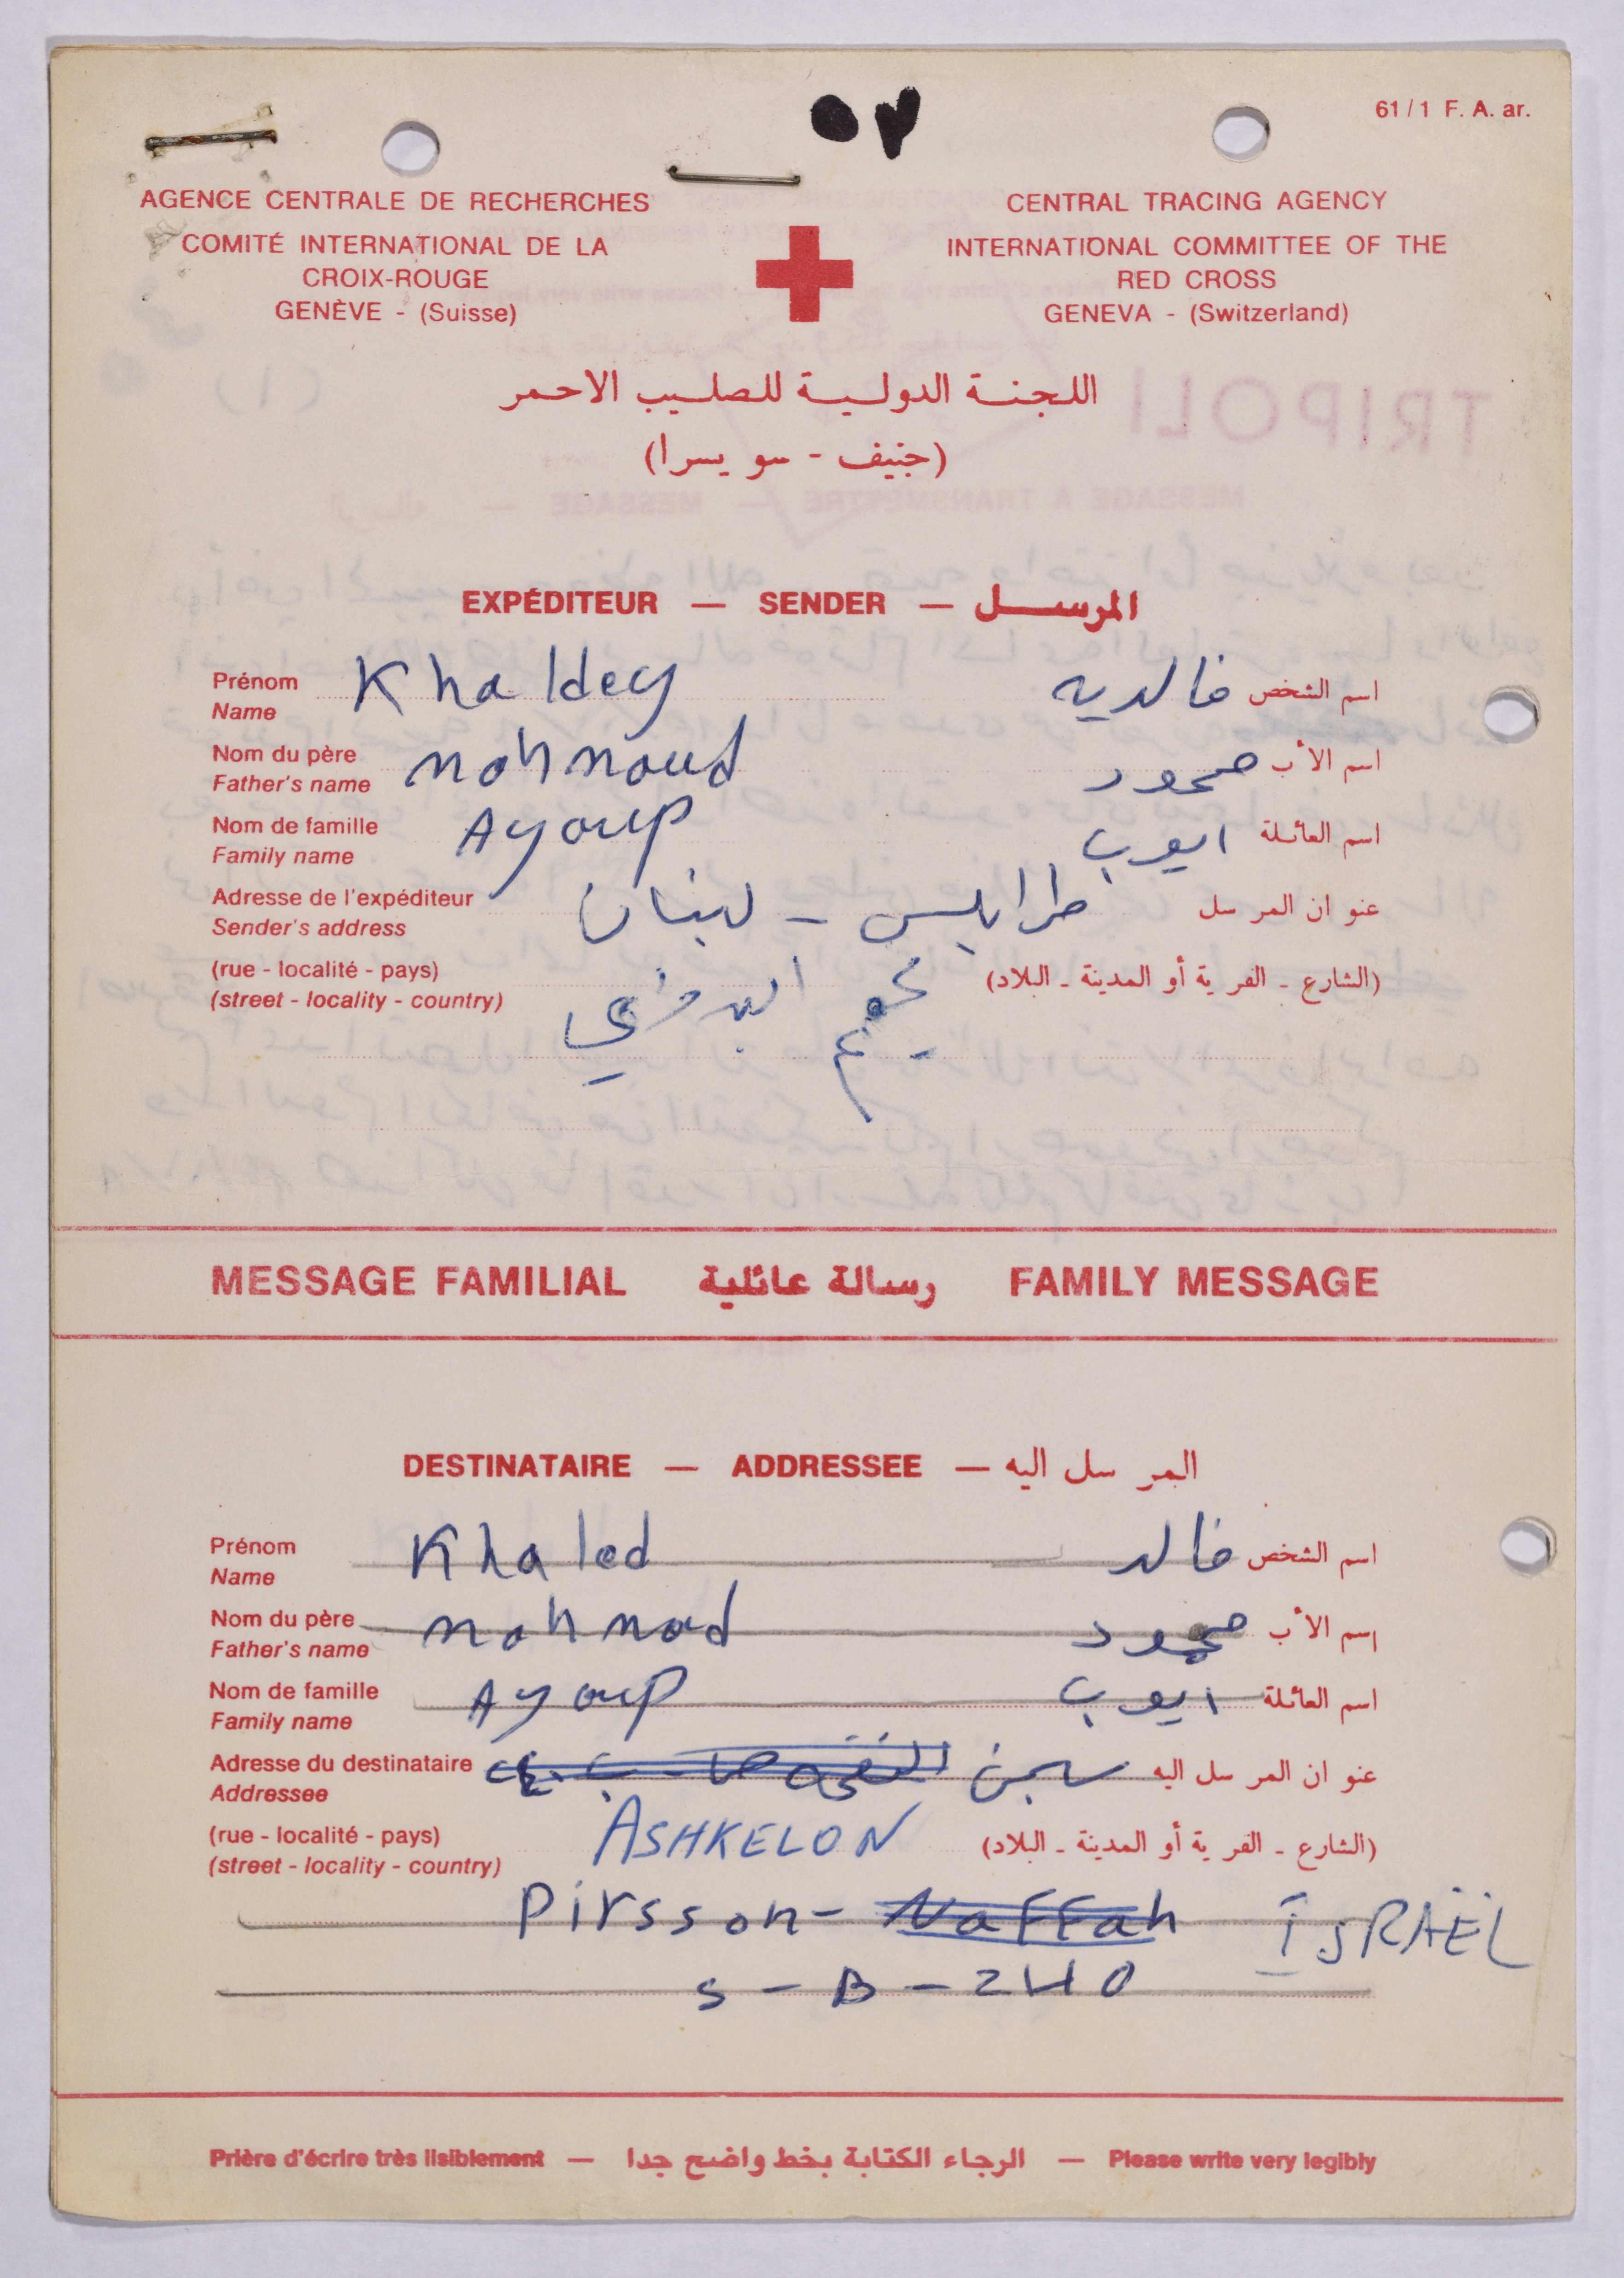 61 / 1 F. A. ar.
AGENCE CENTRALE DE RECHERCHES
COMITÉ INTERNATIONAL DE LA
CROIX-ROUGE
GENÈVE - (Suisse)
CENTRAL TRACING AGENCY
INTERNATIONAL COMMITTEE OF THE
RED CROSS
GENEVA - (Switzerland)
اللجنة الدولية للصليب الاحمر
(جنيف - سويسرا)
TRIPOLI
EXPÉDITEUR — SENDER — المرسل
Prénom Khaldey خالديه اسم الشخص
Name
Nom du père mahmoud محمود اسم الأب
Father's name
Nom de famille Ayoup ايوب اسم العائلة
Family name
Adresse de l'expéditeur طرابلس - لبنان عنوان المرسل
Sender's address
(rue - localité - pays) مخيم البداوي (الشارع - القرية أو المدينة - البلاد)
(street - locality - country)
MESSAGE FAMILIAL رسالة عائلية FAMILY MESSAGE
DESTINATAIRE — ADDRESSEE — المرسل اليه
Prénom Khaled خالد اسم الشخص
Name
Nom du père mahmod محمود إسم الأب
Father's name
Nom de famille Ayoup ايوب اسم العائلة
Family name
Adresse du destinataire سجن عنوان المرسل اليه
Addressee
(rue - localité - pays) ASHKELON (الشارع - القرية أو المدينة - البلاد)
(street - locality - country)
Pirsson - Naffah ISRAËL
S - B - 240
Prière d'écrire très lisiblement — الرجاء الكتابة بخط واضح جدا — Please write very legibly